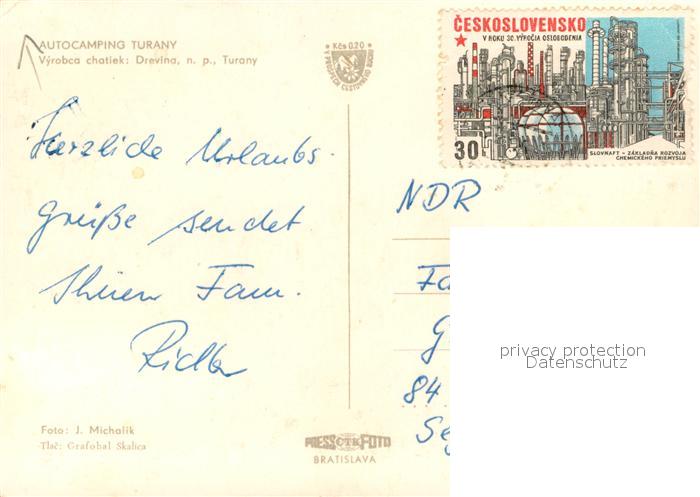 AUTOCAMPING TURANY
Výrobca chatiek: Drevina, n. p., Turany
Kčs 0,20
ČESKOSLOVENSKO
V ROKU 30. VÝROČIA OSLOBODENIA
30h
SLOVNAFT - ZÁKLADŇA ROZVOJA
CHEMICKÉHO PRIEMYSLU
Herzliche Urlaubs-
grüße sendet
Ihnen Fam.
NDR
Fa
G
84
Se
privacy protection
Datenschutz
Foto: J. Michalík
Tlač: Grafobal Skalica
PRESSČTKFOTO
BRATISLAVA